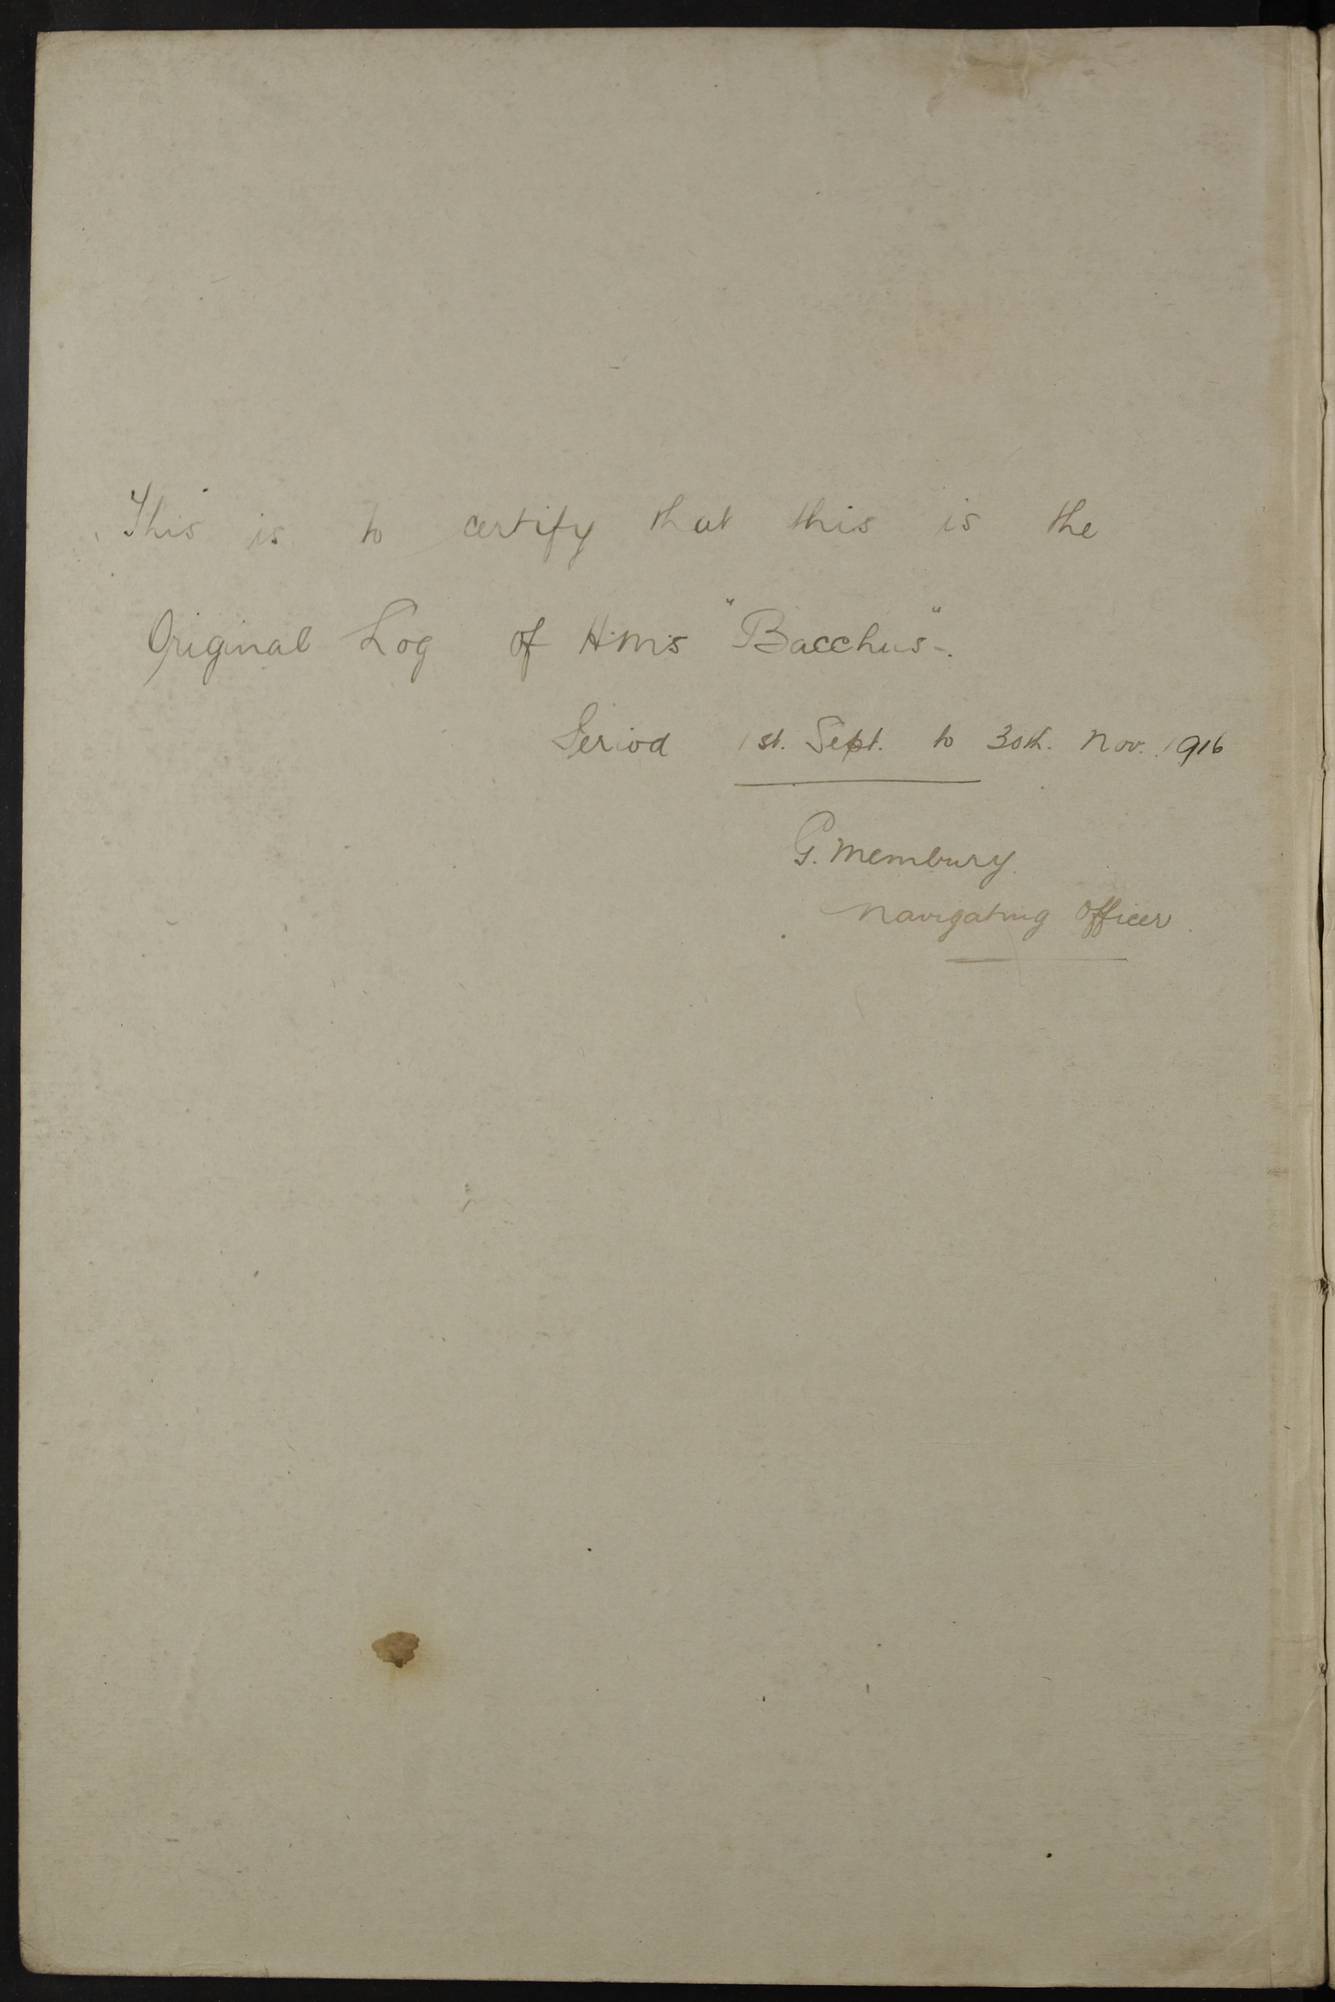 This is to certify that this is the
Original Log of H.M.S "Bacchus"-.
Period 1st. Sept. to 30th. Nov. 1916
G. Membury.
Navigating Officer.